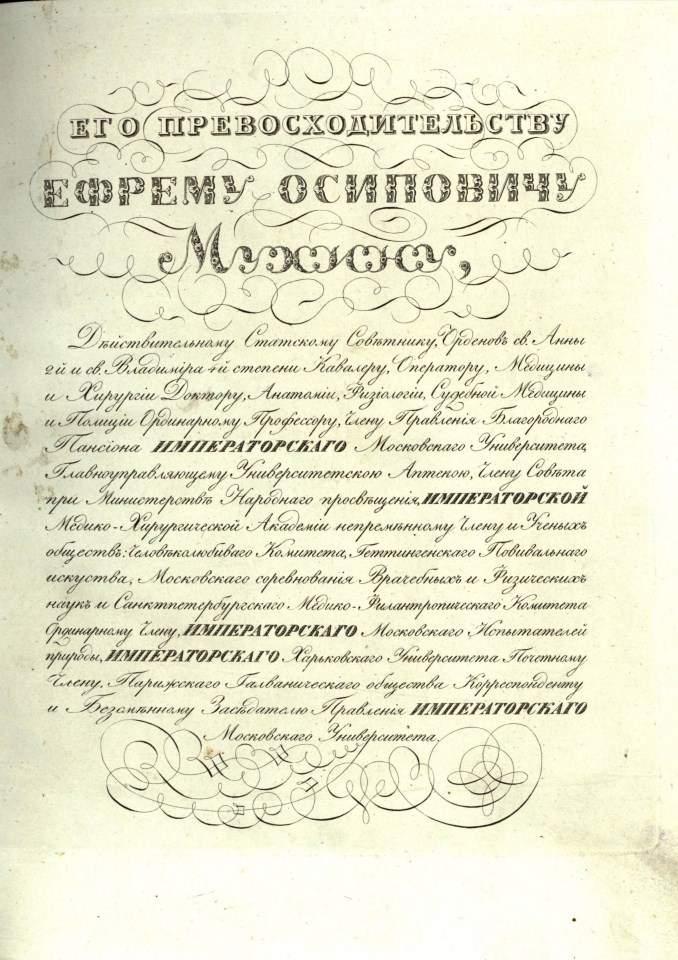 ЕГО ПРЕВОСХОДИТЕЛЬСТВУ
ЕФРЕМУ ОСИПОВИЧУ
Мухину,
Дѣйствительному Статскому Совѣтнику, Орденовъ св. Анны
2й и св. Владиміра 4й степени Кавалеру, Оператору, Медицины
и Хирургіи Доктору, Анатоміи, Физіологіи, Судебной Медицины
и Полиціи Ординарному Профессору, Члену Правленія Благороднаго
Пансіона ИМПЕРАТОРСКАГО Московскаго Университета,
Главноуправляющему Университетскою Аптекою, Члену Совѣта
при Министерствѣ Народнаго просвѣщенія, ИМПЕРАТОРСКОЙ
Медико-Хирургической Академіи непремѣнному Члену и Ученыхъ
обществъ: Человѣколюбиваго Комитета, Геттингенскаго Повивальнаго
искуства, Московскаго соревнованія Врачебныхъ и Физическихъ
наукъ и Санктпетербургскаго Медико-Филантропическаго Комитета
Ординарному Члену, ИМПЕРАТОРСКАГО Московскаго Испытателей
природы, ИМПЕРАТОРСКАГО Харьковскаго Университета Почетному
Члену, Парижскаго Галваническаго общества Корреспонденту
и Безсмѣнному Засѣдателю Правленія ИМПЕРАТОРСКАГО
Московскаго Университета.